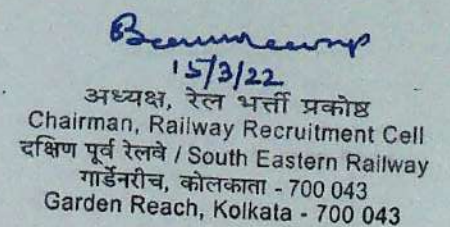 15/3/22
अध्यक्ष, रेल भर्त्ती प्रकोष्ठ
Chairman, Railway Recruitment Cell
दक्षिण पूर्व रेलवे / South Eastern Railway
गार्डेनरीच, कोलकाता - 700 043
Garden Reach, Kolkata - 700 043